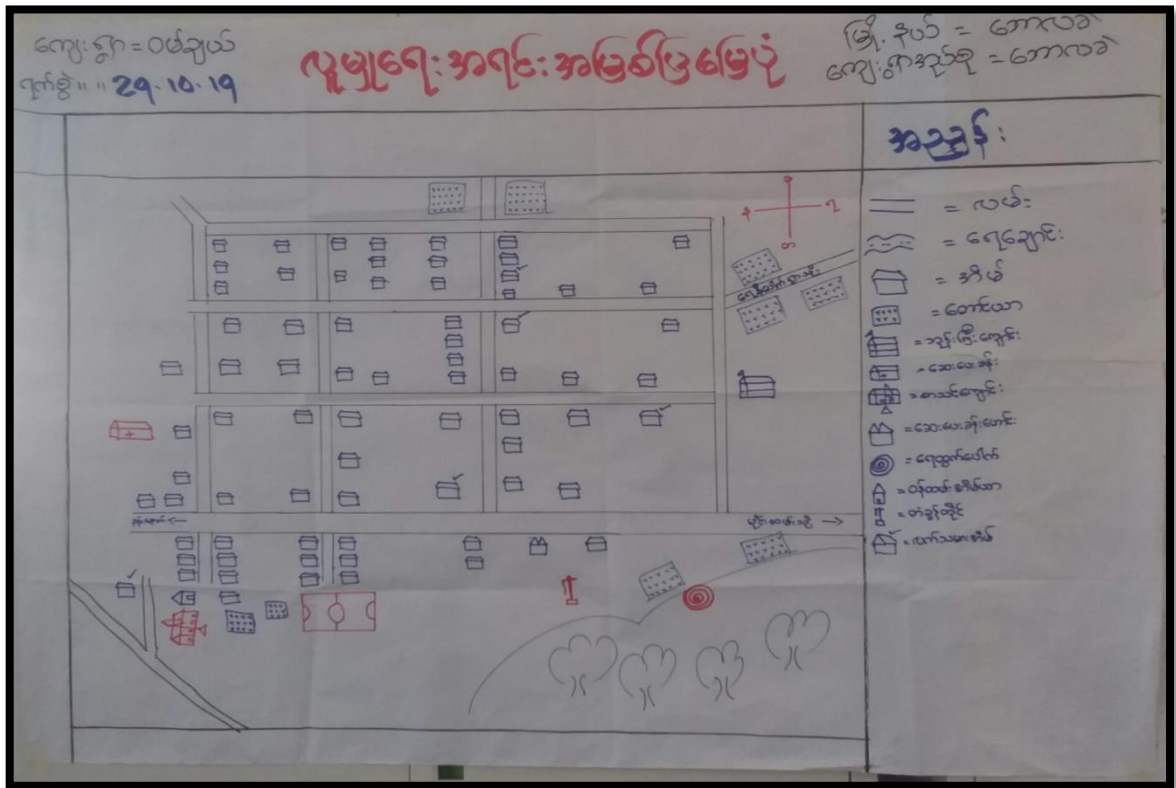 ကျေးရွာ = ဝမ်ချယ်
ရက်စွဲ " " 29.10.19
လူမှုရေးအရင်းအမြစ်ပြမြေပုံ
မြို့နယ် = ဘောလခဲ
ကျေးရွာအုပ်စု = ဘောလခဲ
အညွှန်း
= လမ်း
= ရေချောင်း
= အိမ်
= တောင်ယာ
= ဘုန်းကြီးကျောင်း
= ဆေးပေးခန်း
= စာသင်ကျောင်း
= ဆေးပေးခန်းဟောင်း
= ရေထွက်ပေါက်
= ဝန်ထမ်းအိမ်ယာ
= တံခွန်တိုင်
= လက်သမားအိမ်